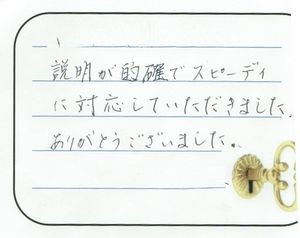 説明が的確でスピーディ
に対応していただきました.
ありがとうございました。